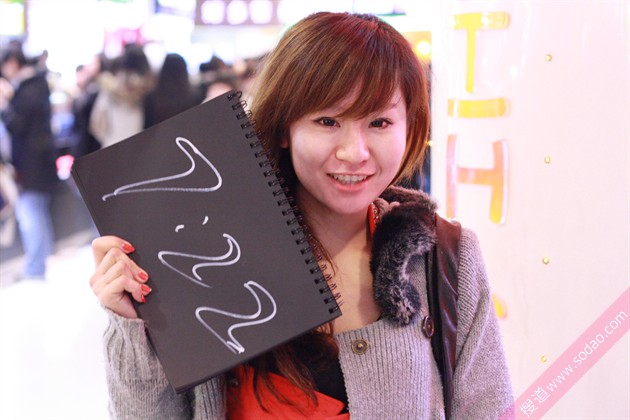 7:22
TH
搜道 www.sodao.com